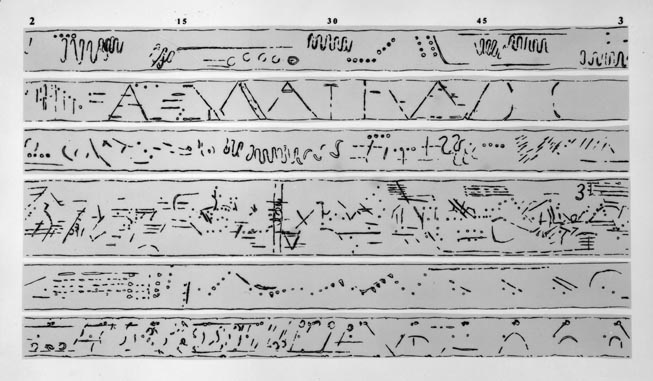 2 15 30 45 3
3